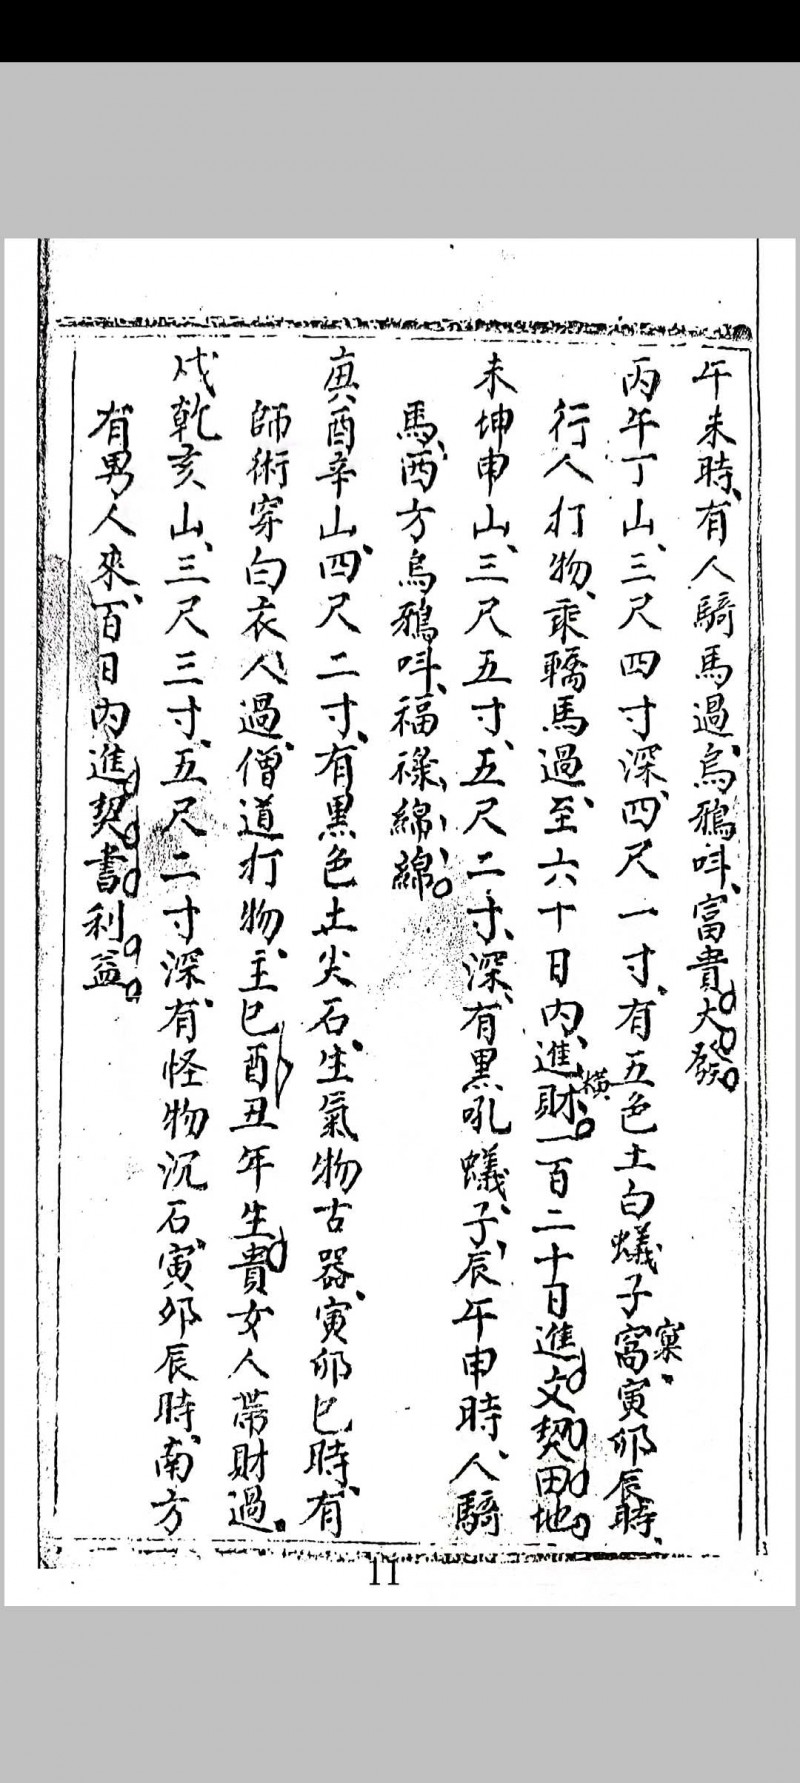 午未時、有人騎馬過、烏鴉叫、富貴大發
丙午丁山、三尺四寸深、四尺一寸、有五色土白蟻子窩寅卯辰時、
窠
行人打物、乘轎馬過、至六十日內、進財、一百二十日進文契田地
橫
未坤申山、三尺五寸、五尺二寸、深、有黑吼蟻、子辰午申時、人騎
馬、西方烏鴉叫、福祿綿綿
庚酉辛山、四尺二寸、有黑色土尖石、生氣物古器、寅卯巳時、有
師術穿白衣人過、僧道打物、主巳酉丑年生貴女人帶財過
戌乾亥山、三尺三寸、五尺二寸深、有怪物沉石、寅卯辰時、南方
有男人來、百日內進契書利益
11